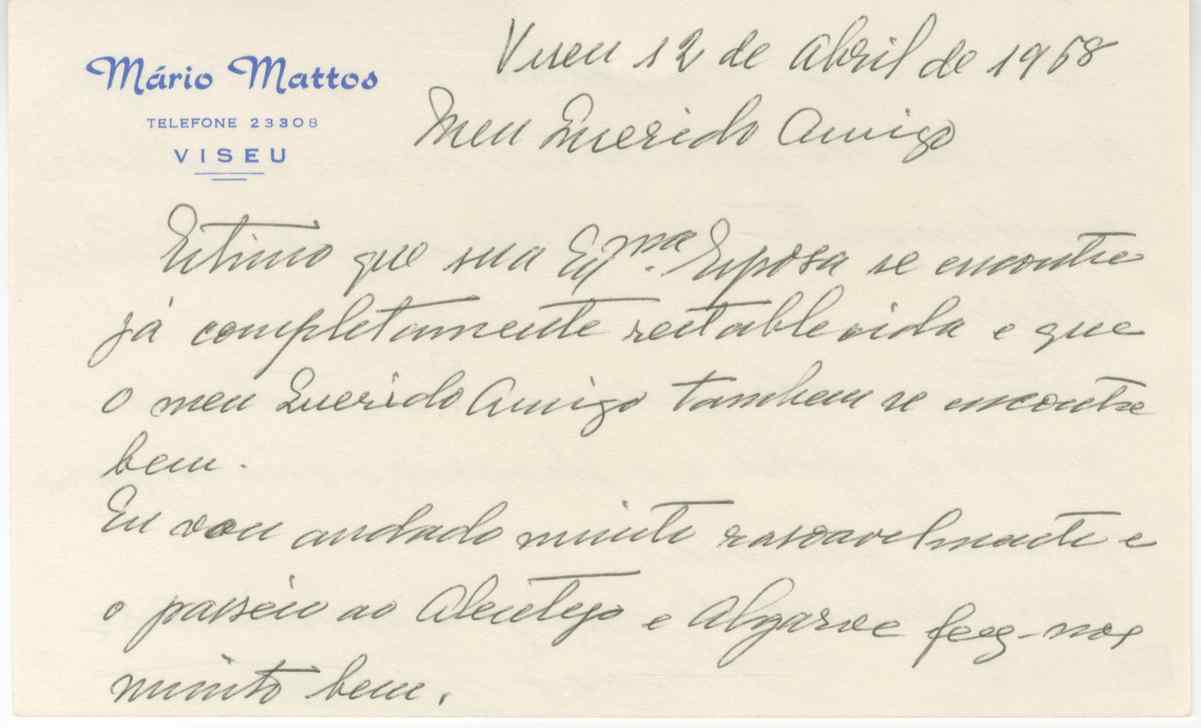 Mário Mattos
TELEFONE 23308
VISEU
Viseu 12 de Abril de 1968
Meu Querido Amigo
Estimo que sua Exma. Esposa se encontre
já completamente restablecida e que
o meu Querido Amigo tambem se encontre
bem.
Eu vou andado muito rasoavelmente e
o passeio ao Alentejo e Algarve fez-nos
muito bem.